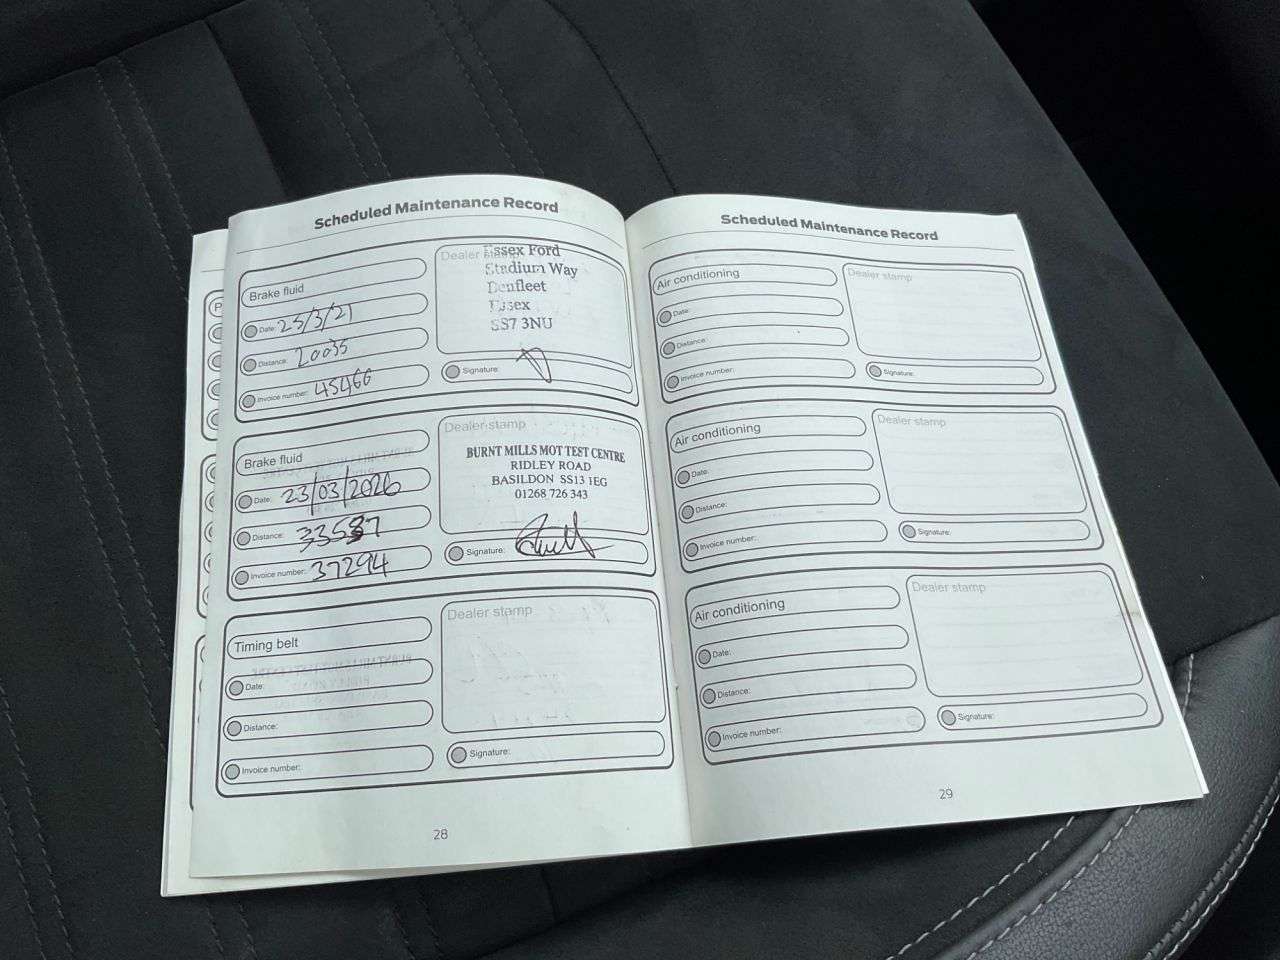 Scheduled Maintenance Record
Brake fluid
Date: 25/3/21
Distance: 20035
Invoice number: 45466
Dealer stamp
Essex Ford
Stadium Way
Benfleet
Essex
SS7 3NU
Signature:
Brake fluid
Date: 23/03/2026
Distance: 33587
Invoice number: 37294
Dealer stamp
BURNT MILLS MOT TEST CENTRE
RIDLEY ROAD
BASILDON SS13 1EG
01268 726 343
Signature:
Timing belt
Date:
Distance:
Invoice number:
Dealer stamp
Signature:
28
Scheduled Maintenance Record
Air conditioning
Date:
Distance:
Invoice number:
Dealer stamp
Signature:
Air conditioning
Date:
Distance:
Invoice number:
Dealer stamp
Signature:
Air conditioning
Date:
Distance:
Invoice number:
Dealer stamp
Signature:
29